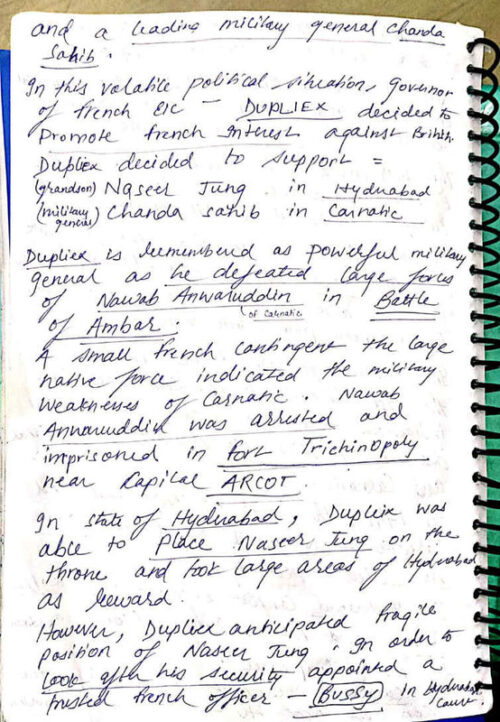 and a leading military general Chanda
Sahib.
In this volatile political situation, Governor
of french EIC - DUPLIEX decided to
Promote french Interest against British.
Dupliex decided to support =
(grandson) Naseer Jung in Hyderabad
(military general) Chanda sahib in Carnatic
Dupliex is remembered as powerful military
general as he defeated large forces
of Nawab Anwaruddin in Battle
of Carnatic
of Ambar.
A small french contingent the large
native force indicated the military
weaknesses of Carnatic. Nawab
Anwaruddin was arrested and
imprisoned in fort Trichinopoly
near Capital ARCOT.
In state of Hyderabad, Dupleix was
able to Place Naseer Jung on the
throne and took large areas of Hyderabad
as reward.
However, Dupliex anticipated fragile
position of Naseer Jung. In order to
look after his security appointed a
trusted french officer - BUSSY in Hyderabad
Court.